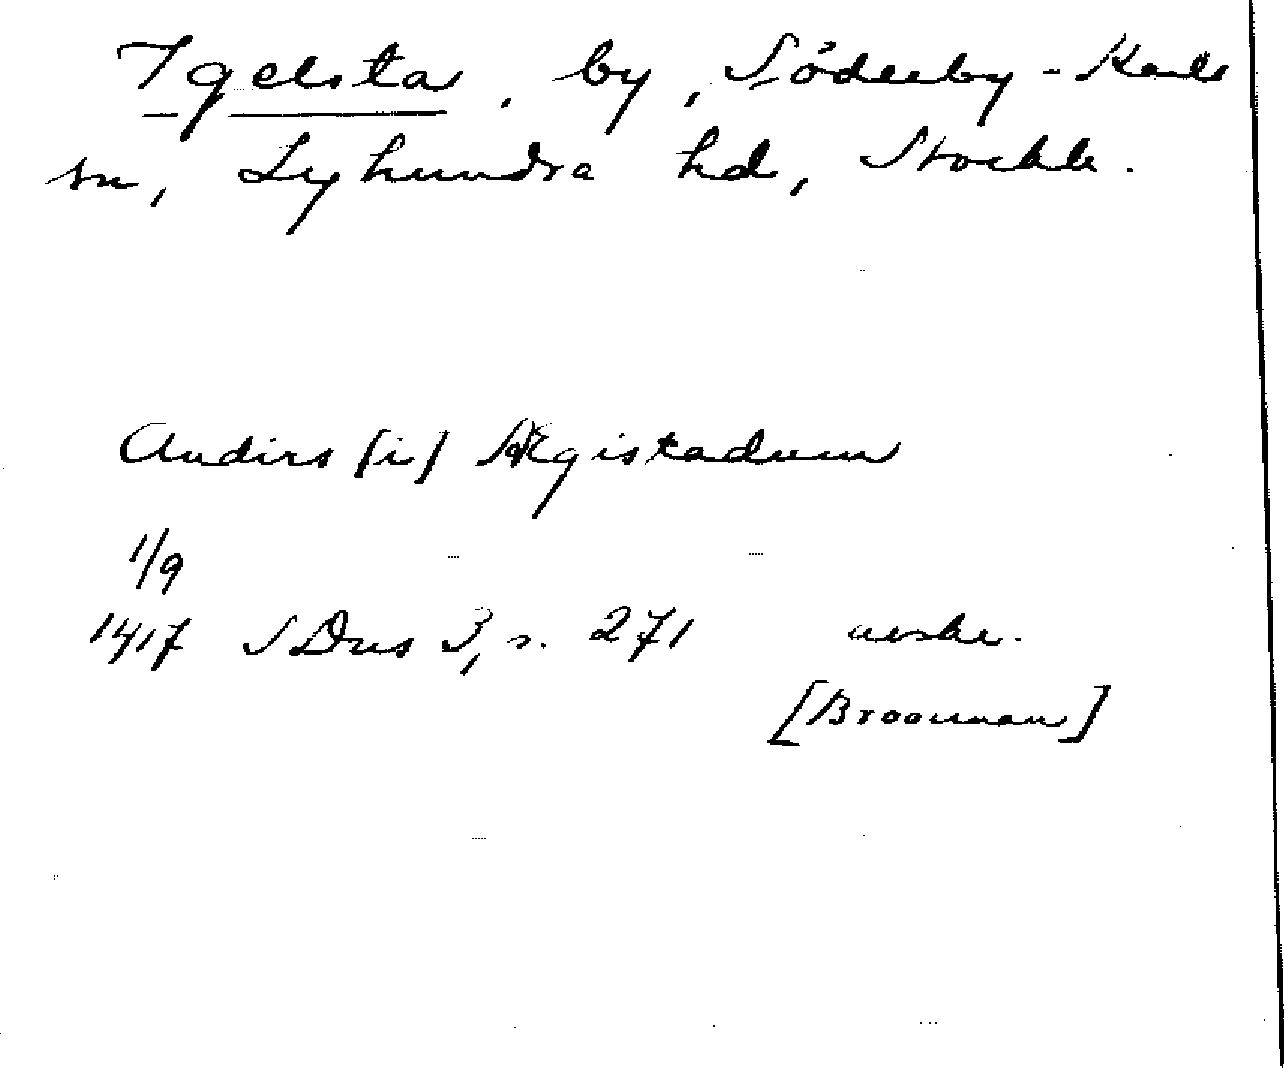 Igelsta, by, Söderby-Karls
sn, Lyhundra hd, Stockh.
Andirs [i] Ægistadum
1/9
1417 SDns 3, s. 271 avskr.
[Brooman]